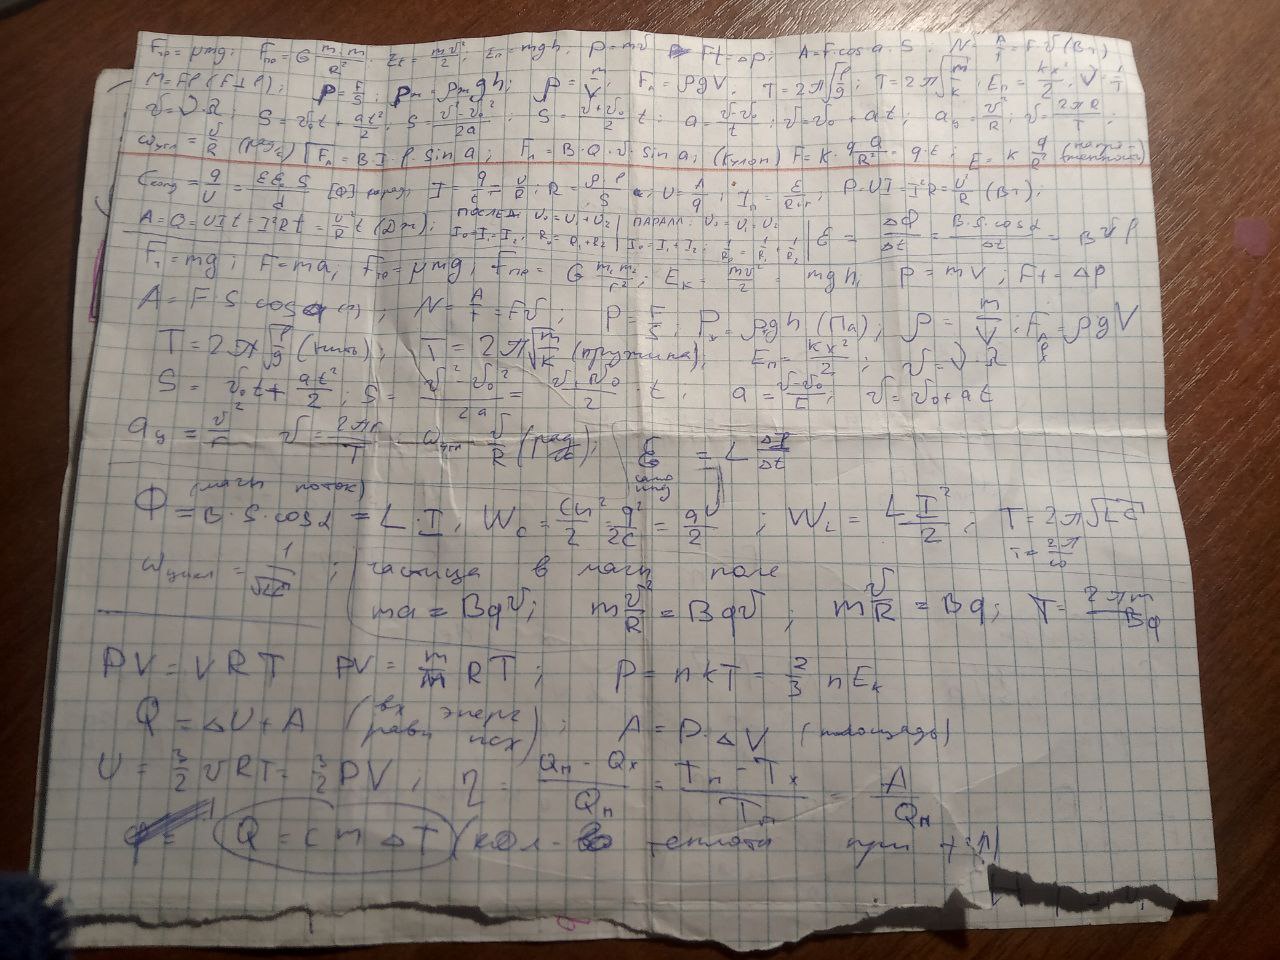 Fтр = μmg; Fпр = G m·m/R²; Eк = mv²/2; Eп = mgh; p = mv Ft = Δp; A = F·cos a·S. N = A/t = F·v (Вт);
M = Fl (F⊥l); P = F/S; Pж = ρж gh; ρ = m/V; Fа = ρgV. T = 2π√(l/g); T = 2π√(m/k); Eп = kx²/2; ν = 1/T
v = ν·λ; S = v₀t + at²/2; S = (v² - v₀²)/2a; S = (v + v₀)/2 t; a = (v - v₀)/t; v = v₀ + at; aц = v²/R; v = 2πR/T;
ωугл = v/R (рад/с) Fа = B·I·l·sin a; Fл = B·Q·v·sin a; (кулон) F = k·q q/R² = q·E; E = k q/R²
Cконд = q/U = εε₀S/d [Ф] I = q/t = U/R; R = ρl/S; U = A/q; Iп = ε/(R+r); P = UI = I²R = U²/R (Вт);
A = Q = UIt = I²Rt = U²/R t (Дж); ПОСЛЕД: U₀ = U₁ + U₂ | ПАРАЛЛ: U₀ = U₁ = U₂ | ε = ΔΦ/Δt = B·S·cosα/Δt = Bvl
I₀ = I₁ = I₂; R₀ = R₁ + R₂ | I₀ = I₁ + I₂; 1/R₀ = 1/R₁ + 1/R₂
Fт = mg; F = ma; Fтр = μmg; Fпр = G m₁m₂/r²; Eк = mv²/2 = mgh, p = mv; Ft = Δp
A = F S cos a; N = A/t = Fv; P = F/S; Pж = ρgh (Па); ρ = m/V; Fа = ρgV
T = 2π√(l/g) (нить); T = 2π√(m/k) (пружина); Eп = kx²/2; v = ν·λ
S = v₀t + at²/2; S = (v² - v₀²)/2a = (v + v₀)/2 · t; a = (v - v₀)/t; v = v₀ + at
aц = v²/r v = 2πr/T ωугл v/R (рад/с); ε само инд = L ΔI/Δt
Φ (магн поток) = B·S·cosα = L·I; Wc = CU²/2 = q²/2C = qU/2; WL = LI²/2; T = 2π√LC
T = 2π/ω
ωцикл = 1/√LC; частица в магн поле
ma = Bqv; m v²/R = Bqv; m v/R = Bq; T = 2πm/Bq
PV = νRT PV = m/M RT; P = nkT = 2/3 nEк
Q = ΔU + A (вх энерг равн исх); A = P·ΔV (площадь)
U = 3/2 νRT = 3/2 PV; η = (Qн - Qх)/Qн = (Tн - Tх)/Tн = A/Qн
Q = cmΔT (кол-во теплота при